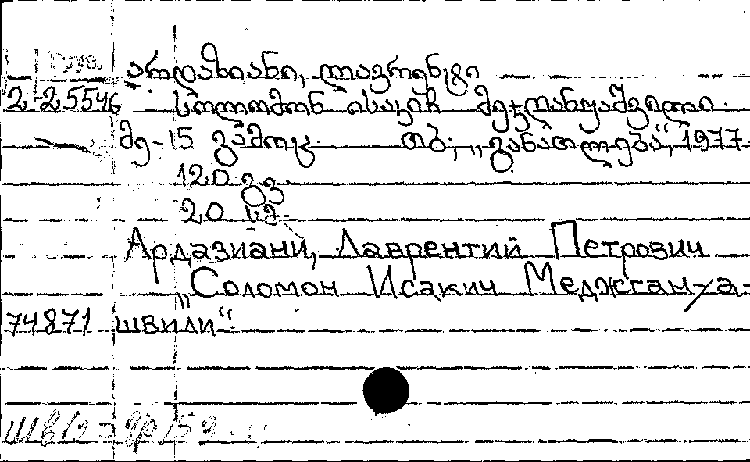 არდაზიანი, ლავრენტი
2-25546 სოლომონ ისაკიჩ მეჯღანუაშვილი.
მე-15 გამოც. თბ., „განათლება“, 1977
120 გვ.
20 კ.
Ардазиани, Лаврентий Петрович
„Соломон Исакич Меджгануа-
74871 швили“.